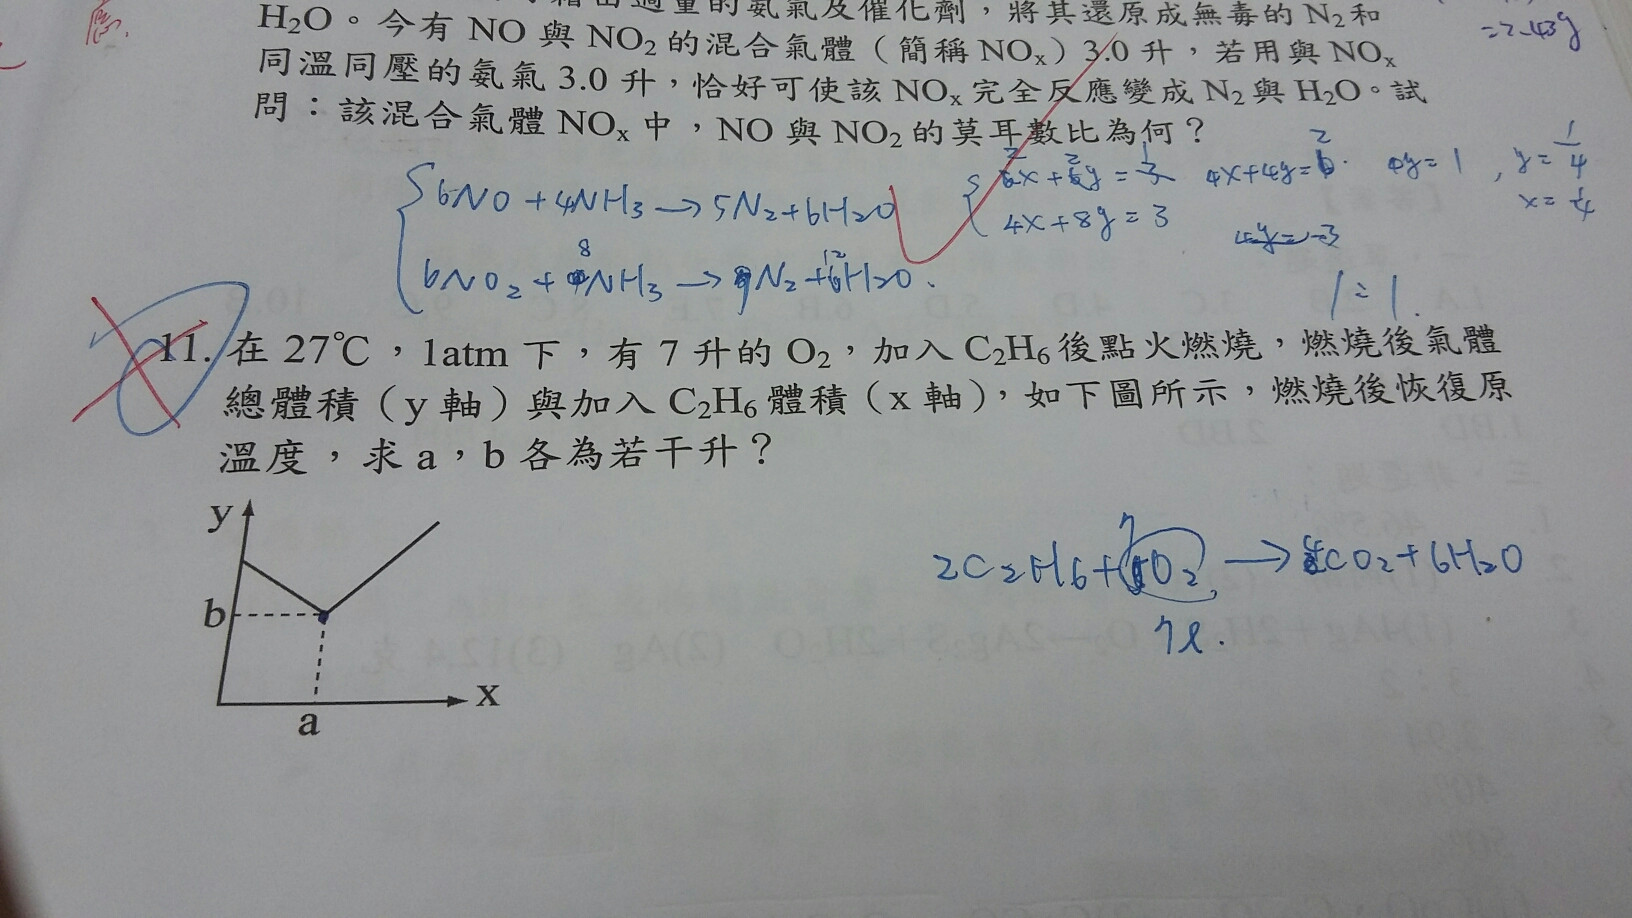 過量的氨氣及催化劑，將其還原成無毒的 N₂ 和
H₂O。今有 NO 與 NO₂ 的混合氣體（簡稱 NOₓ）3.0 升，若用與 NOₓ
同溫同壓的氨氣 3.0 升，恰好可使該 NOₓ 完全反應變成 N₂ 與 H₂O。試
問：該混合氣體 NOₓ 中，NO 與 NO₂ 的莫耳數比為何？
=2.43g
6NO + 4NH₃ → 5N₂ + 6H₂O
6NO₂ + 8NH₃ → N₂ + 12H₂O.
4x + 8y = 3
4x+4y=2
y = 1/4
x = 1/4
1 : 1.
11. 在 27℃，1atm 下，有 7 升的 O₂，加入 C₂H₆ 後點火燃燒，燃燒後氣體
總體積（y 軸）與加入 C₂H₆ 體積（x 軸），如下圖所示，燃燒後恢復原
溫度，求 a，b 各為若干升？
y
b
a
x
2C₂H₆ + 7O₂ → 4CO₂ + 6H₂O
7ℓ.